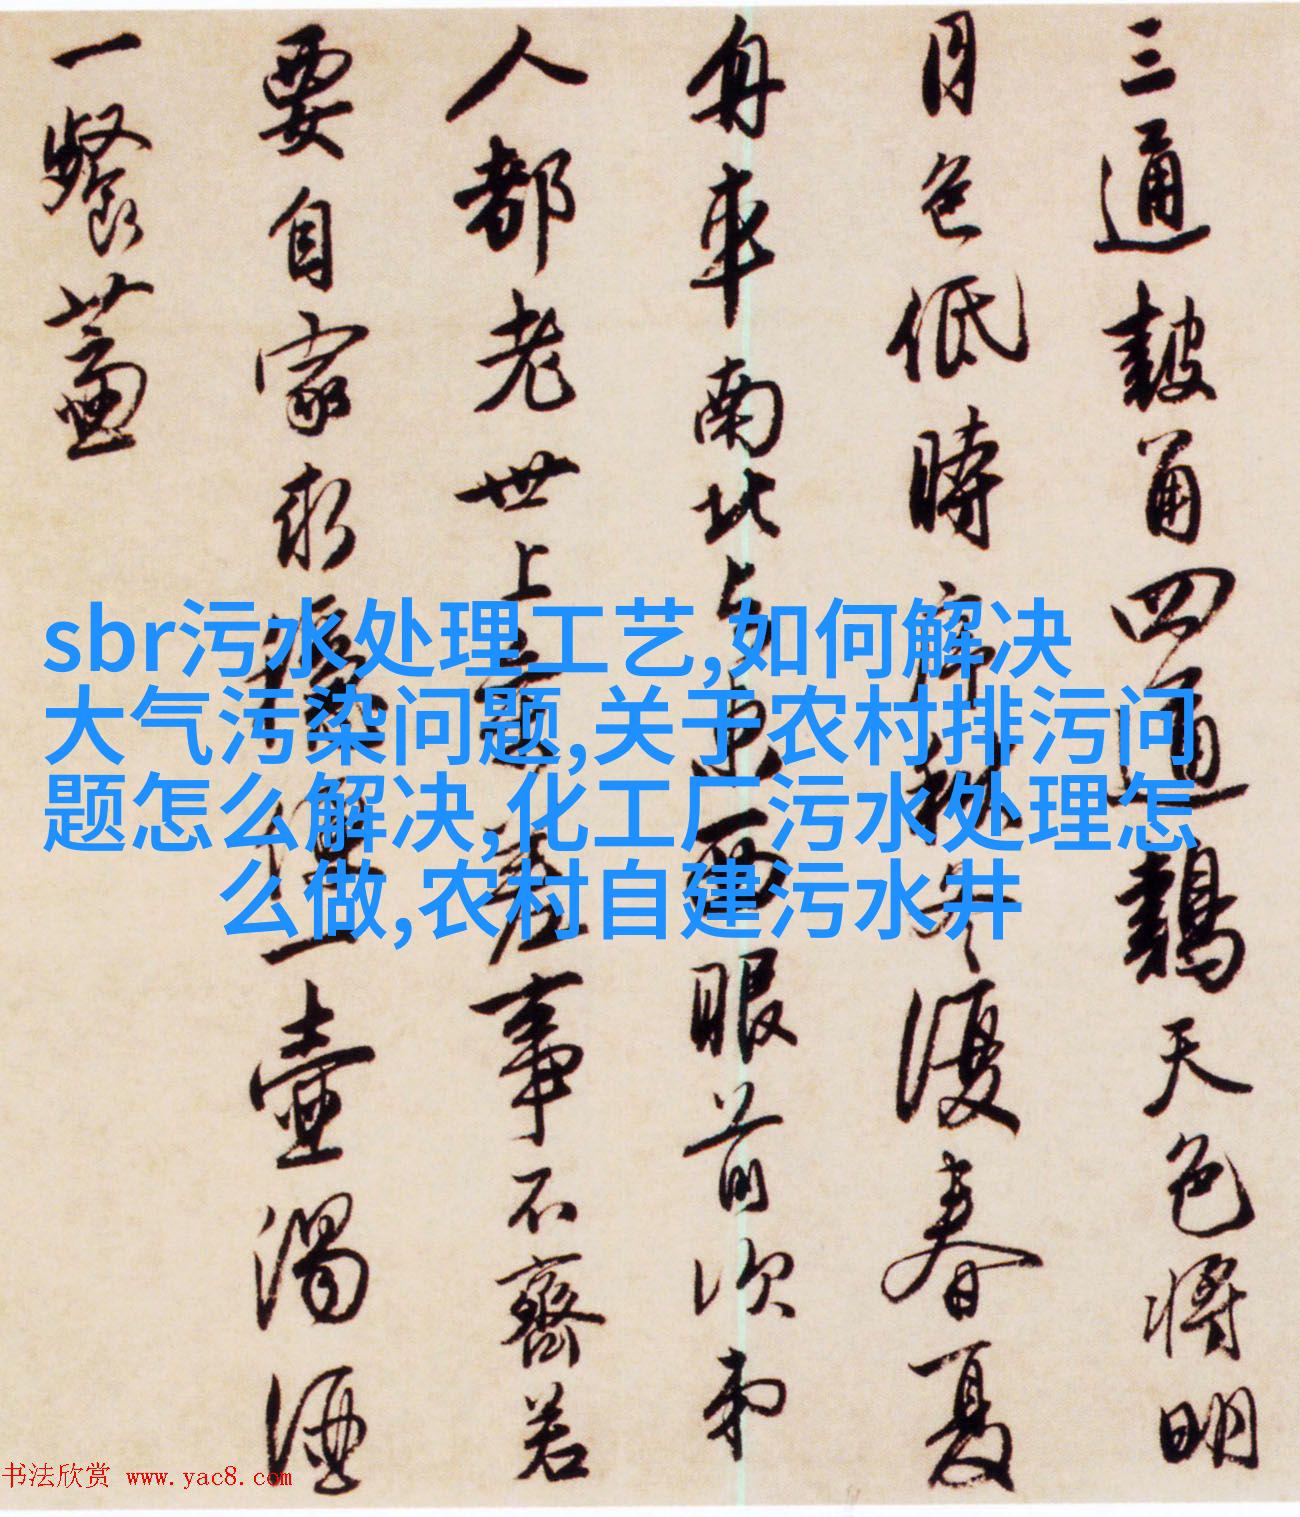 三通鼓角四通鷄天色將明
月色低時序秋冬復春夏
舟車南北与東西眼前次第
人都老世上參差事不齊若
要自家求穩便一壺濁酒
一餐虀
sbr污水处理工艺,如何解决
大气污染问题,关于农村排污问
题怎么解决,化工厂污水处理怎
么做,农村自建污水井
书法欣赏 www.yac8.com